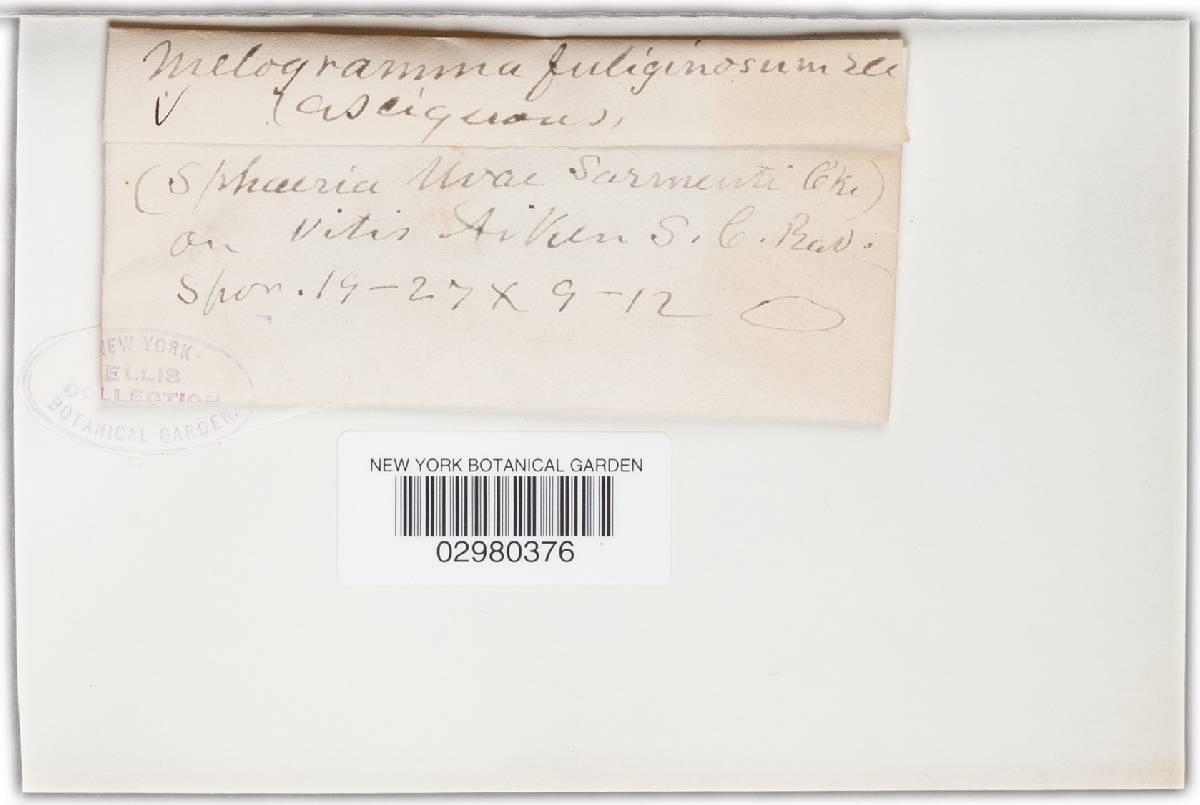 Melogramma fuliginosum Ell
√ (ascigerous)
(Sphaeria Uvae Sarmenti Cke)
on Vitis Aiken S. C. Rav.
Spor. 19-27 x 9-12
NEW YORK
ELLIS
COLLECTION
BOTANICAL GARDEN.
NEW YORK BOTANICAL GARDEN
02980376